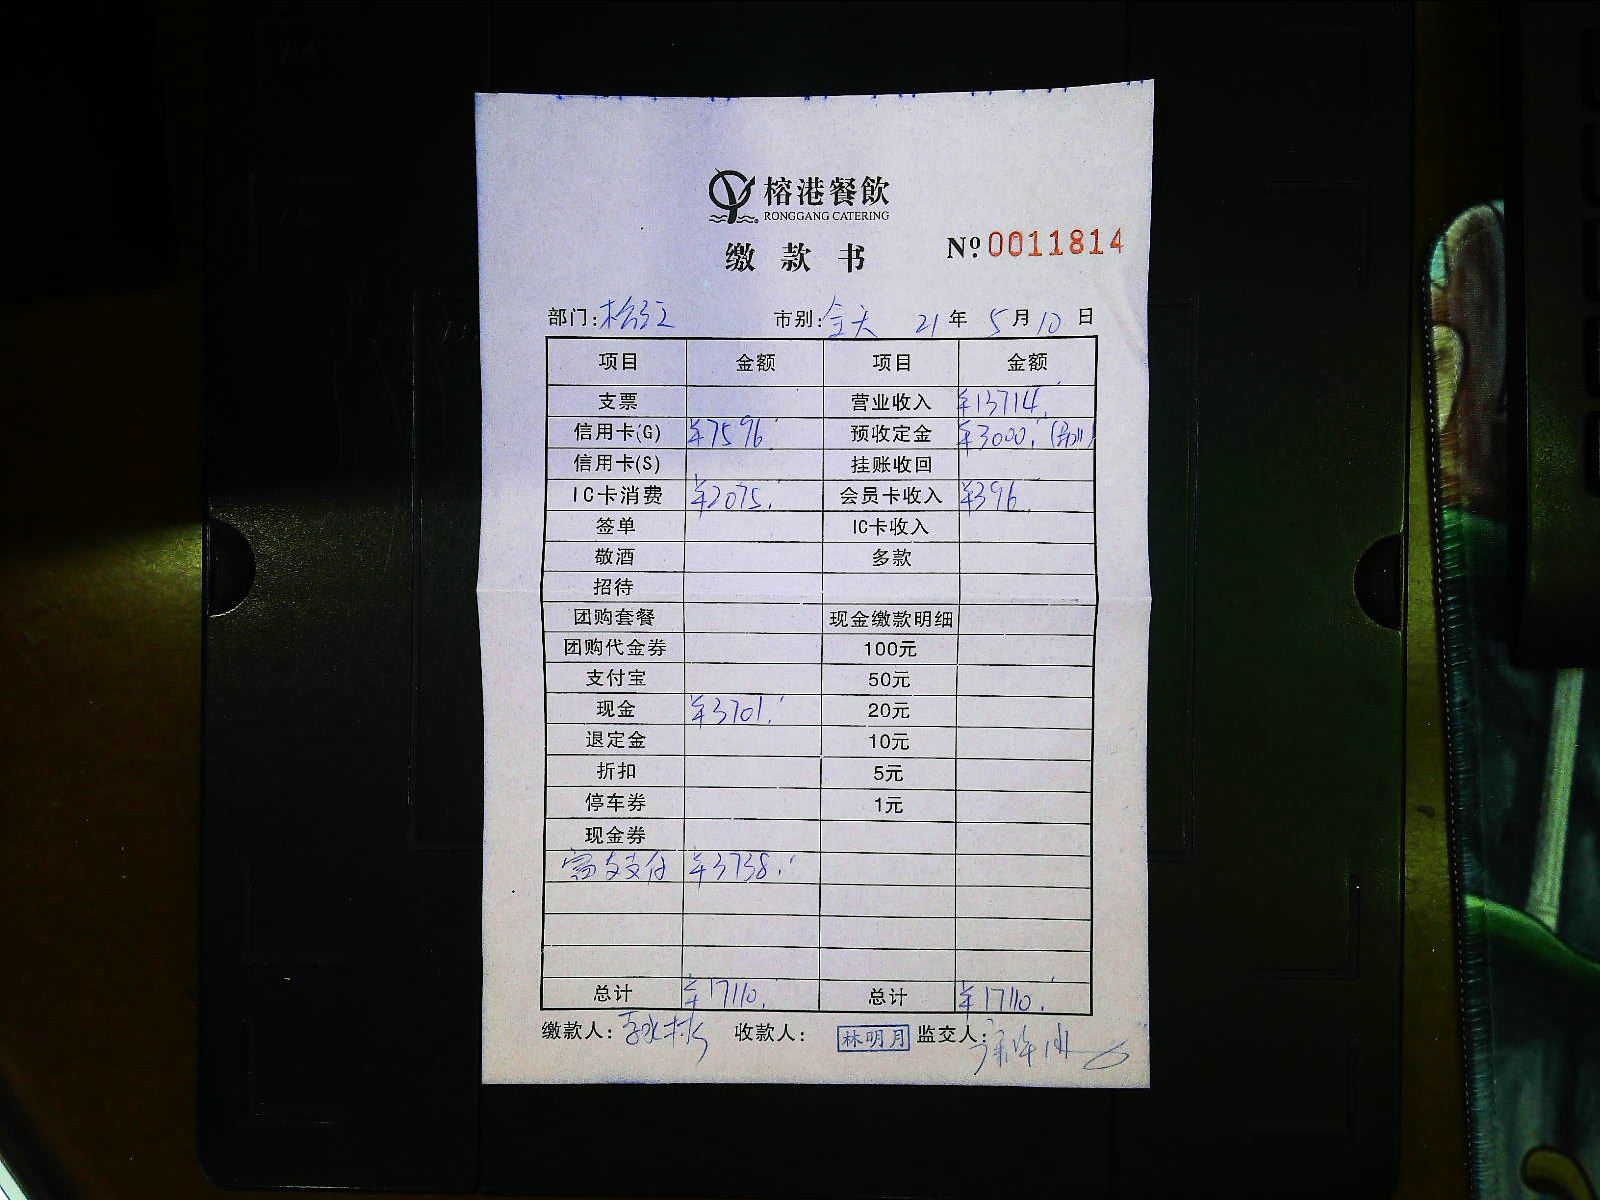 榕港餐飲
RONGGANG CATERING
缴款书 Nº 0011814
部门: 市别:全天 21年5月10日
项目 金额 项目 金额
支票 营业收入 ¥13714.
信用卡(G) ¥7596. 预收定金 ¥3000.
信用卡(S) 挂账收回
IC卡消费 ¥2075. 会员卡收入 ¥396.
签单 IC卡收入
敬酒 多款
招待
团购套餐 现金缴款明细
团购代金券 100元
支付宝 50元
现金 ¥3701. 20元
退定金 10元
折扣 5元
停车券 1元
现金券
支付 ¥3738.
总计 ¥17110. 总计 ¥17110.
缴款人: 收款人: 林明月 监交人: